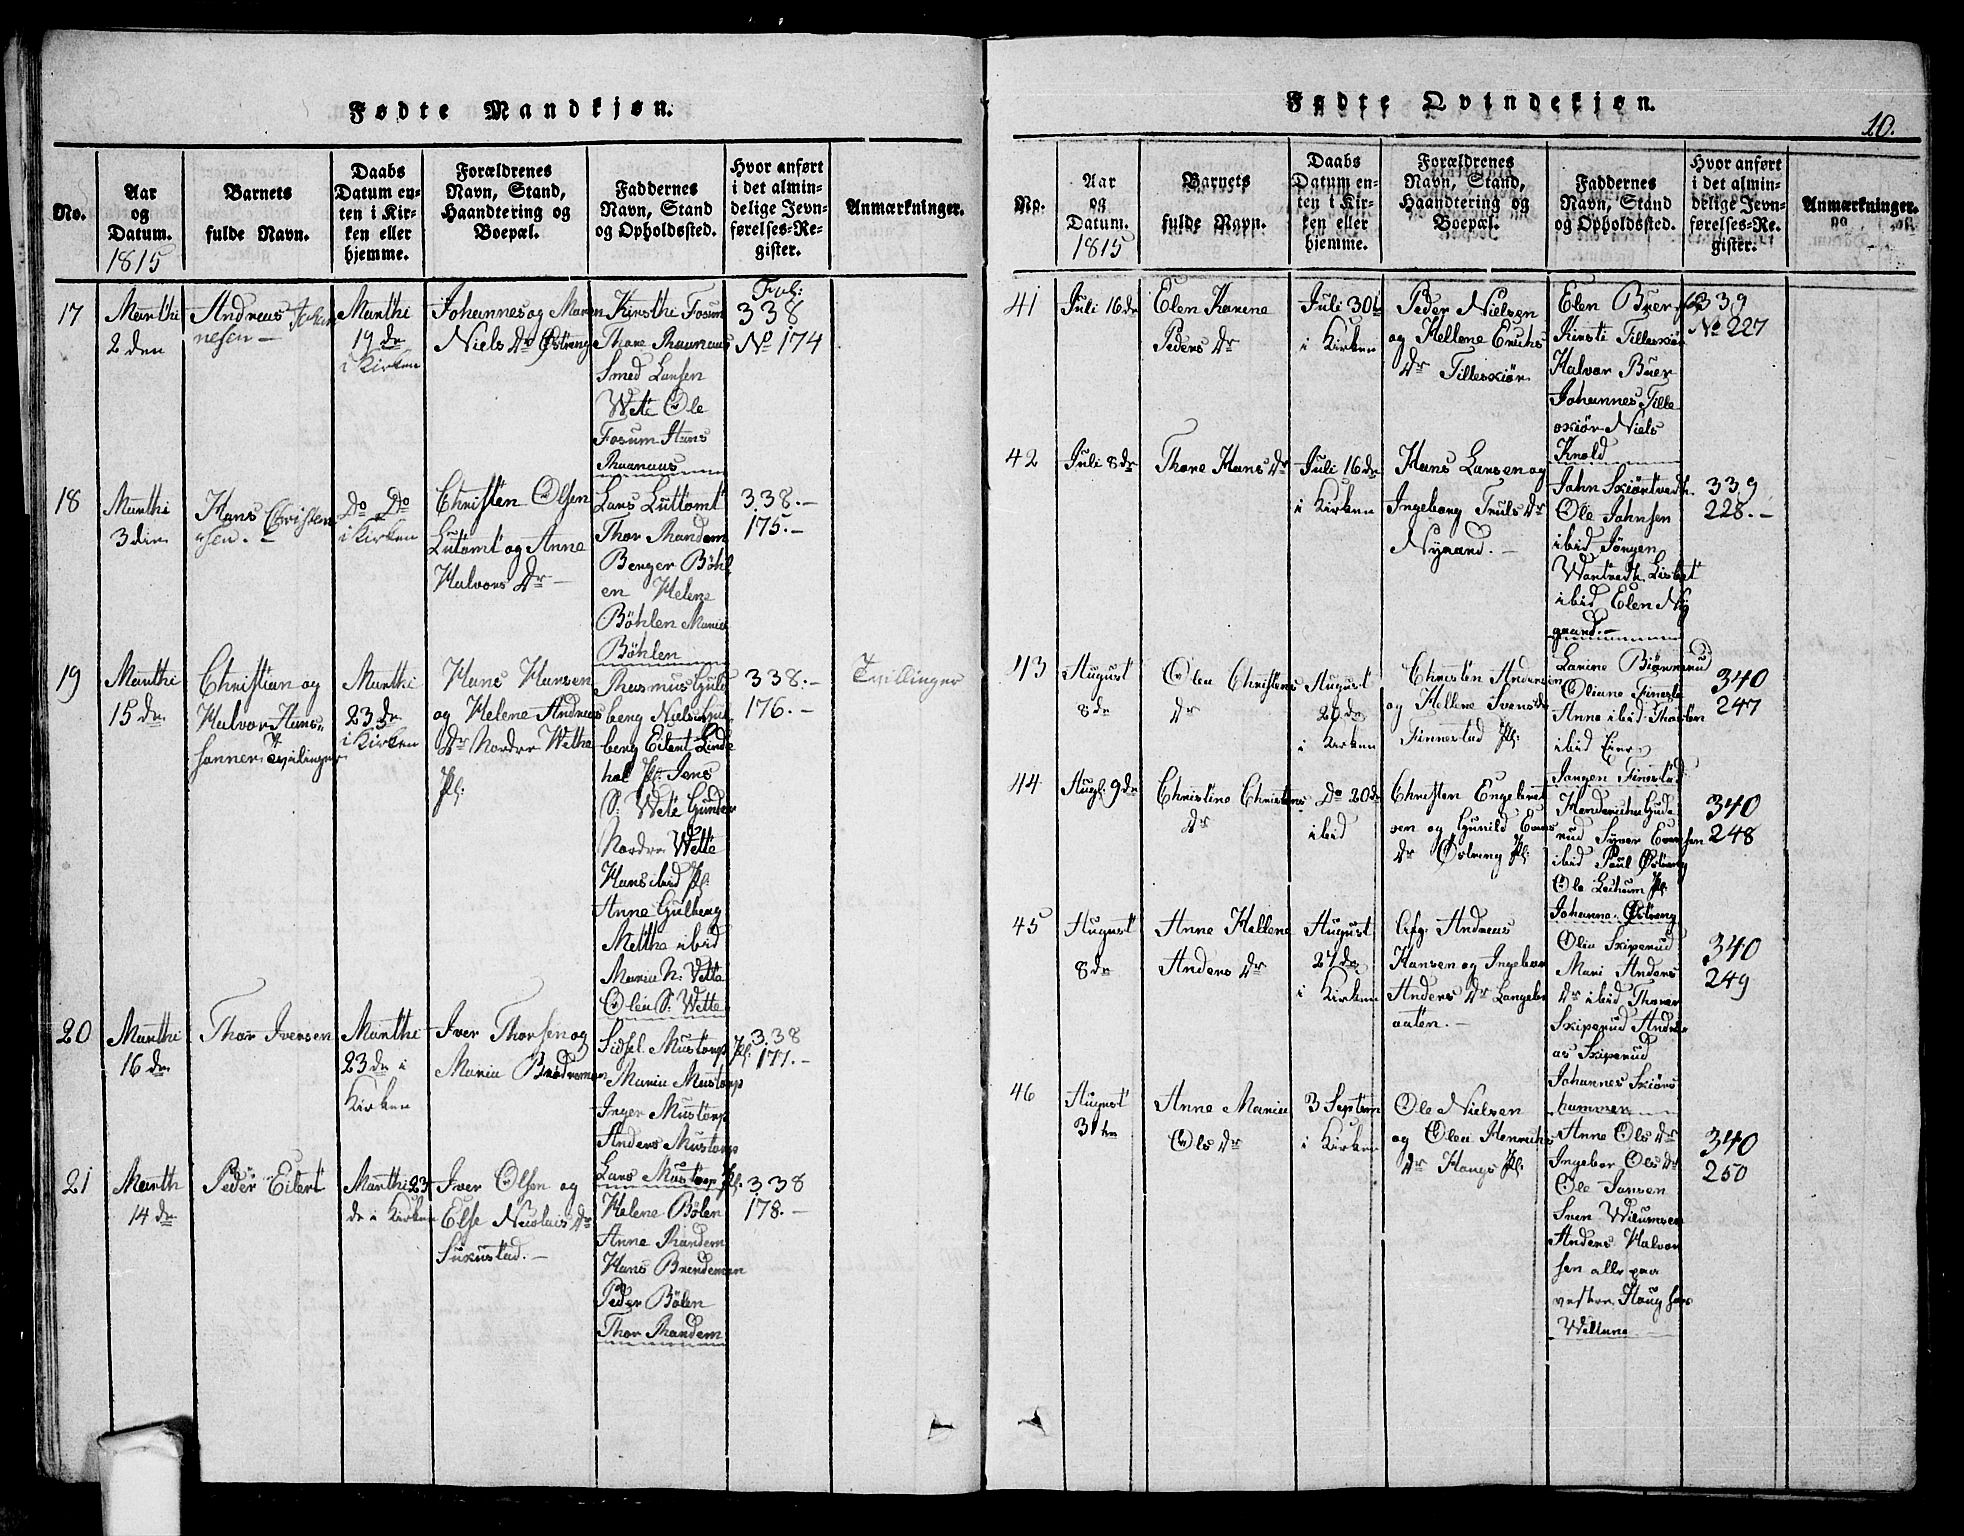 Fødte Mandkjøn.
No.
Aar
og
Datum.
1815
Barnets
fulde Navn.
Daabs
Datum en-
ten i Kir-
ken eller
hjemme.
Forældrenes
Navn, Stand,
Haandtering og
Boepæl.
Faddernes
Navn, Stand
og Opholdssted.
Hvor anført
i det almin-
delige Jevn-
førelses-Re-
gister.
Anmærkninger.
17
Marthi
2 den
Andreas Johan
nesen
Marthi
19 de
i Kirken
Johannes og Maren
Niels Dr Østreng
Kirsthi Fosum
Thore Raanaas
Smed Larsen
Wete Ole
Fosum Hans
Raanaas
Fol:
338
No 174
18
Marthi
3 die
Hans Christen
sen.
Do Do
i Kirken
Christen Olsen
Lutomt og Anne
Halvors Dr
Lars Luttomt
Thor Randem
Berger Böhl
en Helene
Böhlen Marie
Böhlen
338.
175.
19
Marthi
15 de
Christian og
Halvor Hans
sønner tvilinger
Marthi
23 de
i Kirken
Hans Hansen
og Helene Andreas
Dr Nordre Wethe
Pl:
Rasmus Guld
berg Niels Gul
berg Eilert Linde
hol Pl: Jens
S: Wete Gunder
Nordre Wette
Hans ibid Pl:
Anne Gulberg
Mette ibid
Maria N: Vette
Olea S: Wette
338.
176.
Tvillinger
20
Marthi
16 de
Thor Iversen
Marthi
23 de i
Kirken
Iver Thorsen og
Maria Brødremoen
Sidsel Mustorp Pl:
Maria Mustorp
Inger Mustorp
Anders Mustorp
Lars Mustorp Pl:
338
177.
21
Marth
14 de
Peder Eilert
Marthi 23
de i Kirken
Iver Olsen og
Else Nicolais Dr
Sukustad.
Helene Bölen
Anne Randem
Hans Brendemoen
Peder Bölen
Thor Randem
338
178.
Fødte Qvindekjøn.
10.
No.
Aar
og
Datum.
1815
Barnets
fulde Navn.
Daabs
Datum en-
ten i Kir-
ken eller
hjemme.
Forældrenes
Navn, Stand,
Haandtering og
Boepæl.
Faddernes
Navn, Stand
og Opholdssted.
Hvor anført
i det almin-
delige Jevn-
førelses-Re-
gister.
Anmærkninger.
41
Juli 16 de
Elen Karine
Peders Dr
Juli 30te
i Kirken
Peder Nielsen
og Hellene Erichs
Dr Tilleskiør
Elen Buer
Kirsti Tilleskiør
Halvor Buer
Johannes Tille
skiør Niels
Knold
339
No 227
42
Juli 8 de
Thore Hans Dr
Juli 16 de
i Kirken
Hans Larsen og
Ingeborg Truls Dr
Nygaard.
John Skiørtvedt
Ole Johnsen
ibid Jörgen
Wartvedt Lisbet
ibid Elen Ny
gaard.
339
228.
43
August
8 de
Olea Christens
Dr
August
20 de
i Kirken
Christen Andersen
og Hellene Svens Dr
Finnestad Pl:
Larine Biønnerud
Oliane Finestad
Anne ibid Thosten
ibid
Jørgen Finestad
340
247
44
Augl. 9 de
Christine Christens
Dr
Do 20 de
ibid
Christen Engebret
sen og Gunild Evens
Dr Østreng Pl:
Henderiche Gude
rud Syver Evensen
ibid Poul Østreng
Ole Lecheum Pl:
Johanne Østreng
340
248
45
August
8 de
Anne Hellene
Anders Dr
August
27 de
i Kirken
Afg: Andreas
Hansen og Ingebor
Anders Dr Langebr
aaten.
Olea Skiperud
Mari Anders
Dr ibid Thorer
Skiperud Andre
as Skiperud
Johannes Skiørs
hammer
340
249
46
August
31 te
Anne Maria
Ols Dr
3 Septem
i Kirken
Ole Nielsen
og Olea Henrichs
Dr Haugs Pl:
Anne Ols Dr
Ingebor Ols Dr
Ole Jansen
Sven Wilumsen
Anders Halvor
sen alle paa
vestre Haug
340
250